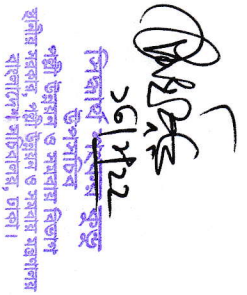 সিদ্ধার্থ কুন্ডু
উপসচিব
পল্লী উন্নয়ন ও সমবায় বিভাগ
স্থানীয় সরকার, পল্লী উন্নয়ন ও সমবায় মন্ত্রণালয়
বাংলাদেশ সচিবালয়, ঢাকা।